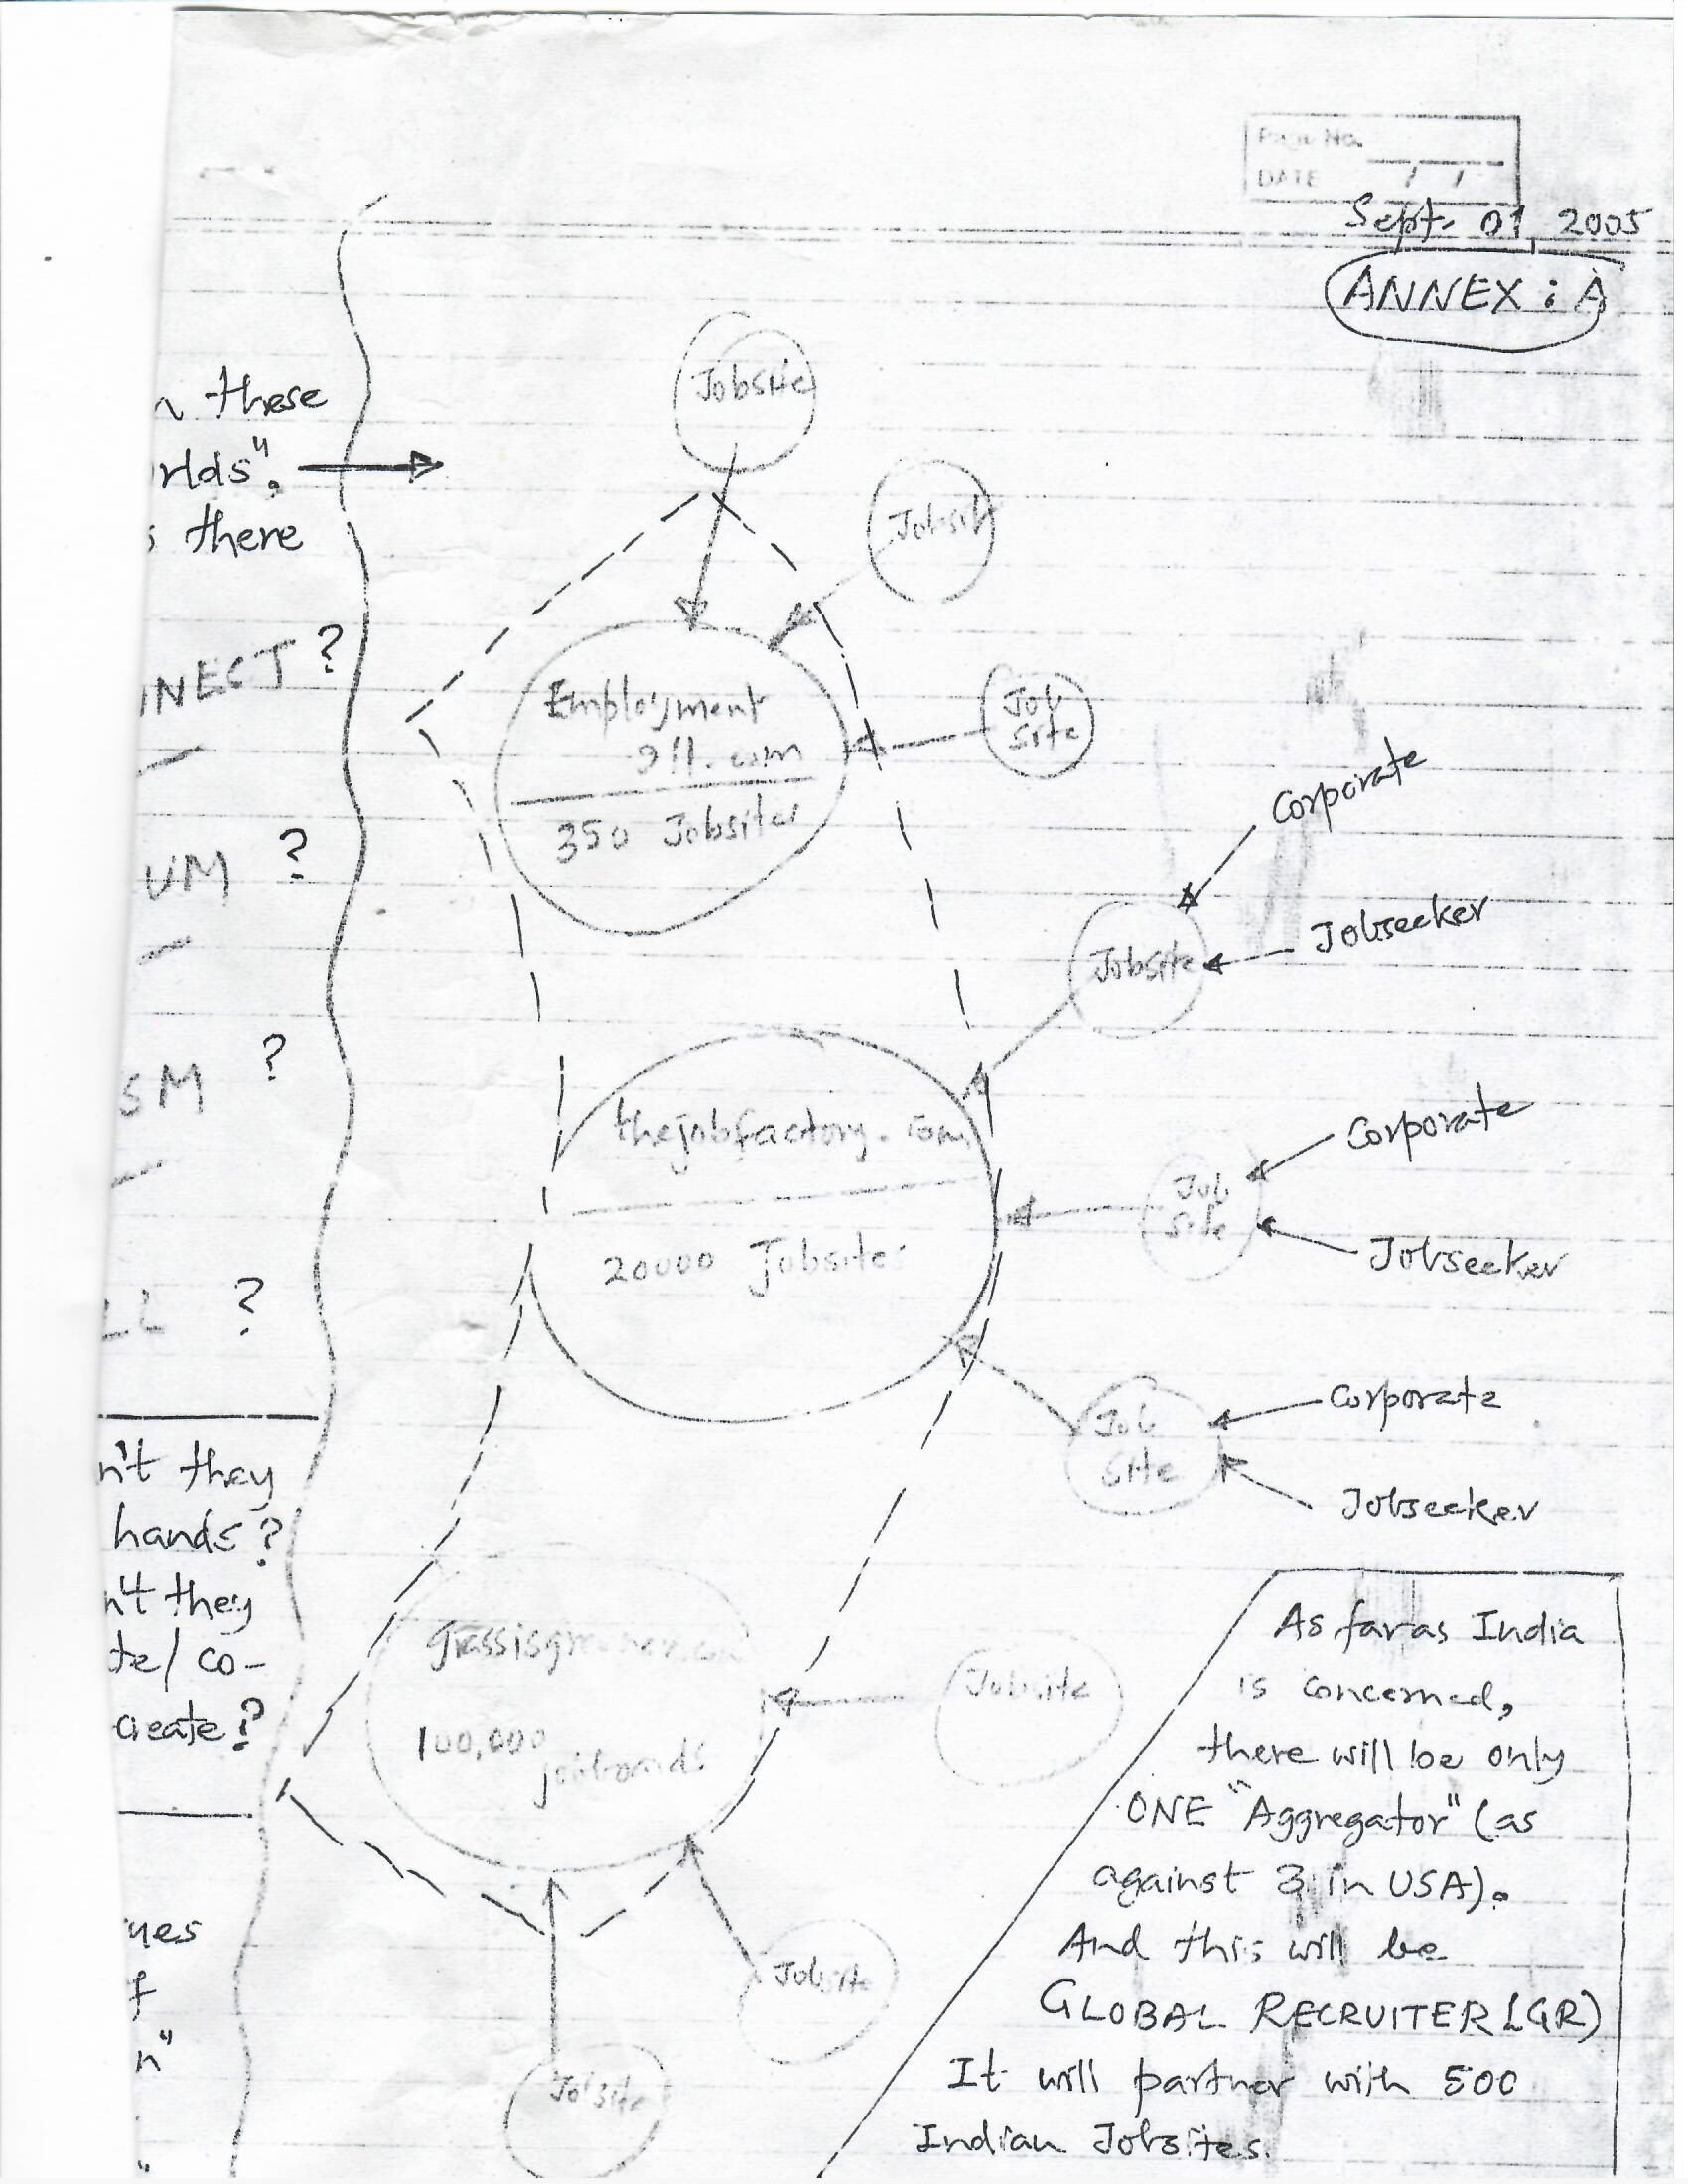 Page No.
DATE / /
Sept. 01, 2005
ANNEX : A
these
rlds".
there
NNECT ?
UM ?
SM ?
LL ?
n't they
hands ?
n't they
te / co-
create ?
ues
f
n"
"
Jobsite
Jobsite
Job
Site
Employment
911.com
350 Jobsites
Corporate
Jobseeker
Jobsite
thejobfactory.com
20000 Jobsites
Corporate
Job
Site
Jobseeker
Corporate
Job
Site
Jobseeker
grassisgreener.com
100,000
jobboards
Jobsite
Jobsite
Jobsite
As far as India
is concerned,
there will be only
ONE "Aggregator" (as
against 3 in USA).
And this will be
GLOBAL RECRUITER (GR)
It will partner with 500
Indian Jobsites.